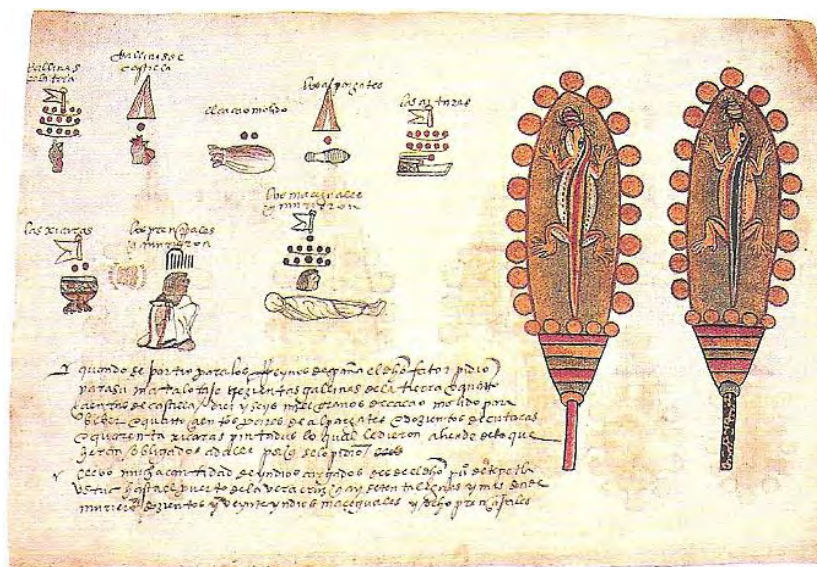 gallinas
gallinas de
castilla
el cacao molido
los alpargates
las cutaras
los maceguales
q murieron
las xicaras
los prençipales
q murieron
y quando se partio para los Reynos despaña el dho fator pidio
para su matalotaje trezientas gallinas de la tierra e quatro
çientas de castilla / diez y seys mill granos de cacao molido para
beber e quatro çientos pares de alpargates e dozientos de cutaras
e quarenta xicaras pintadas lo qual le dieron
heran obligados a
llevo mucha cantidad de yndios cargados desde el dho
hasta el puerto de la vera cruz q ay setenta leguas y mas donde
murieron dozientos y veynte yndios maceguales y ocho prençipales